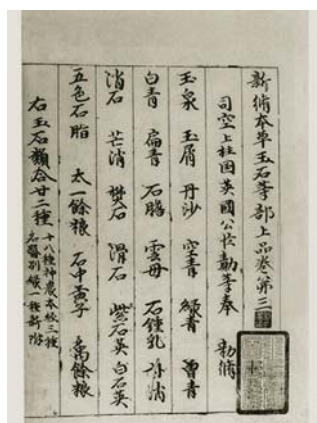 新脩本草玉石等部上品卷第三
司空上柱国英國公臣勣等奉 勅脩
玉泉 玉屑 丹沙 空青 緑青 曾青
白青 扁青 石膽 雲母 石鍾乳 朴消
消石 芒消 樊石 滑石 紫石英 白石英
五色石脂 太一餘粮 石中黄子 禹餘粮
右玉石類合廿二種 十八種神農本経三種
名醫別録一種新附